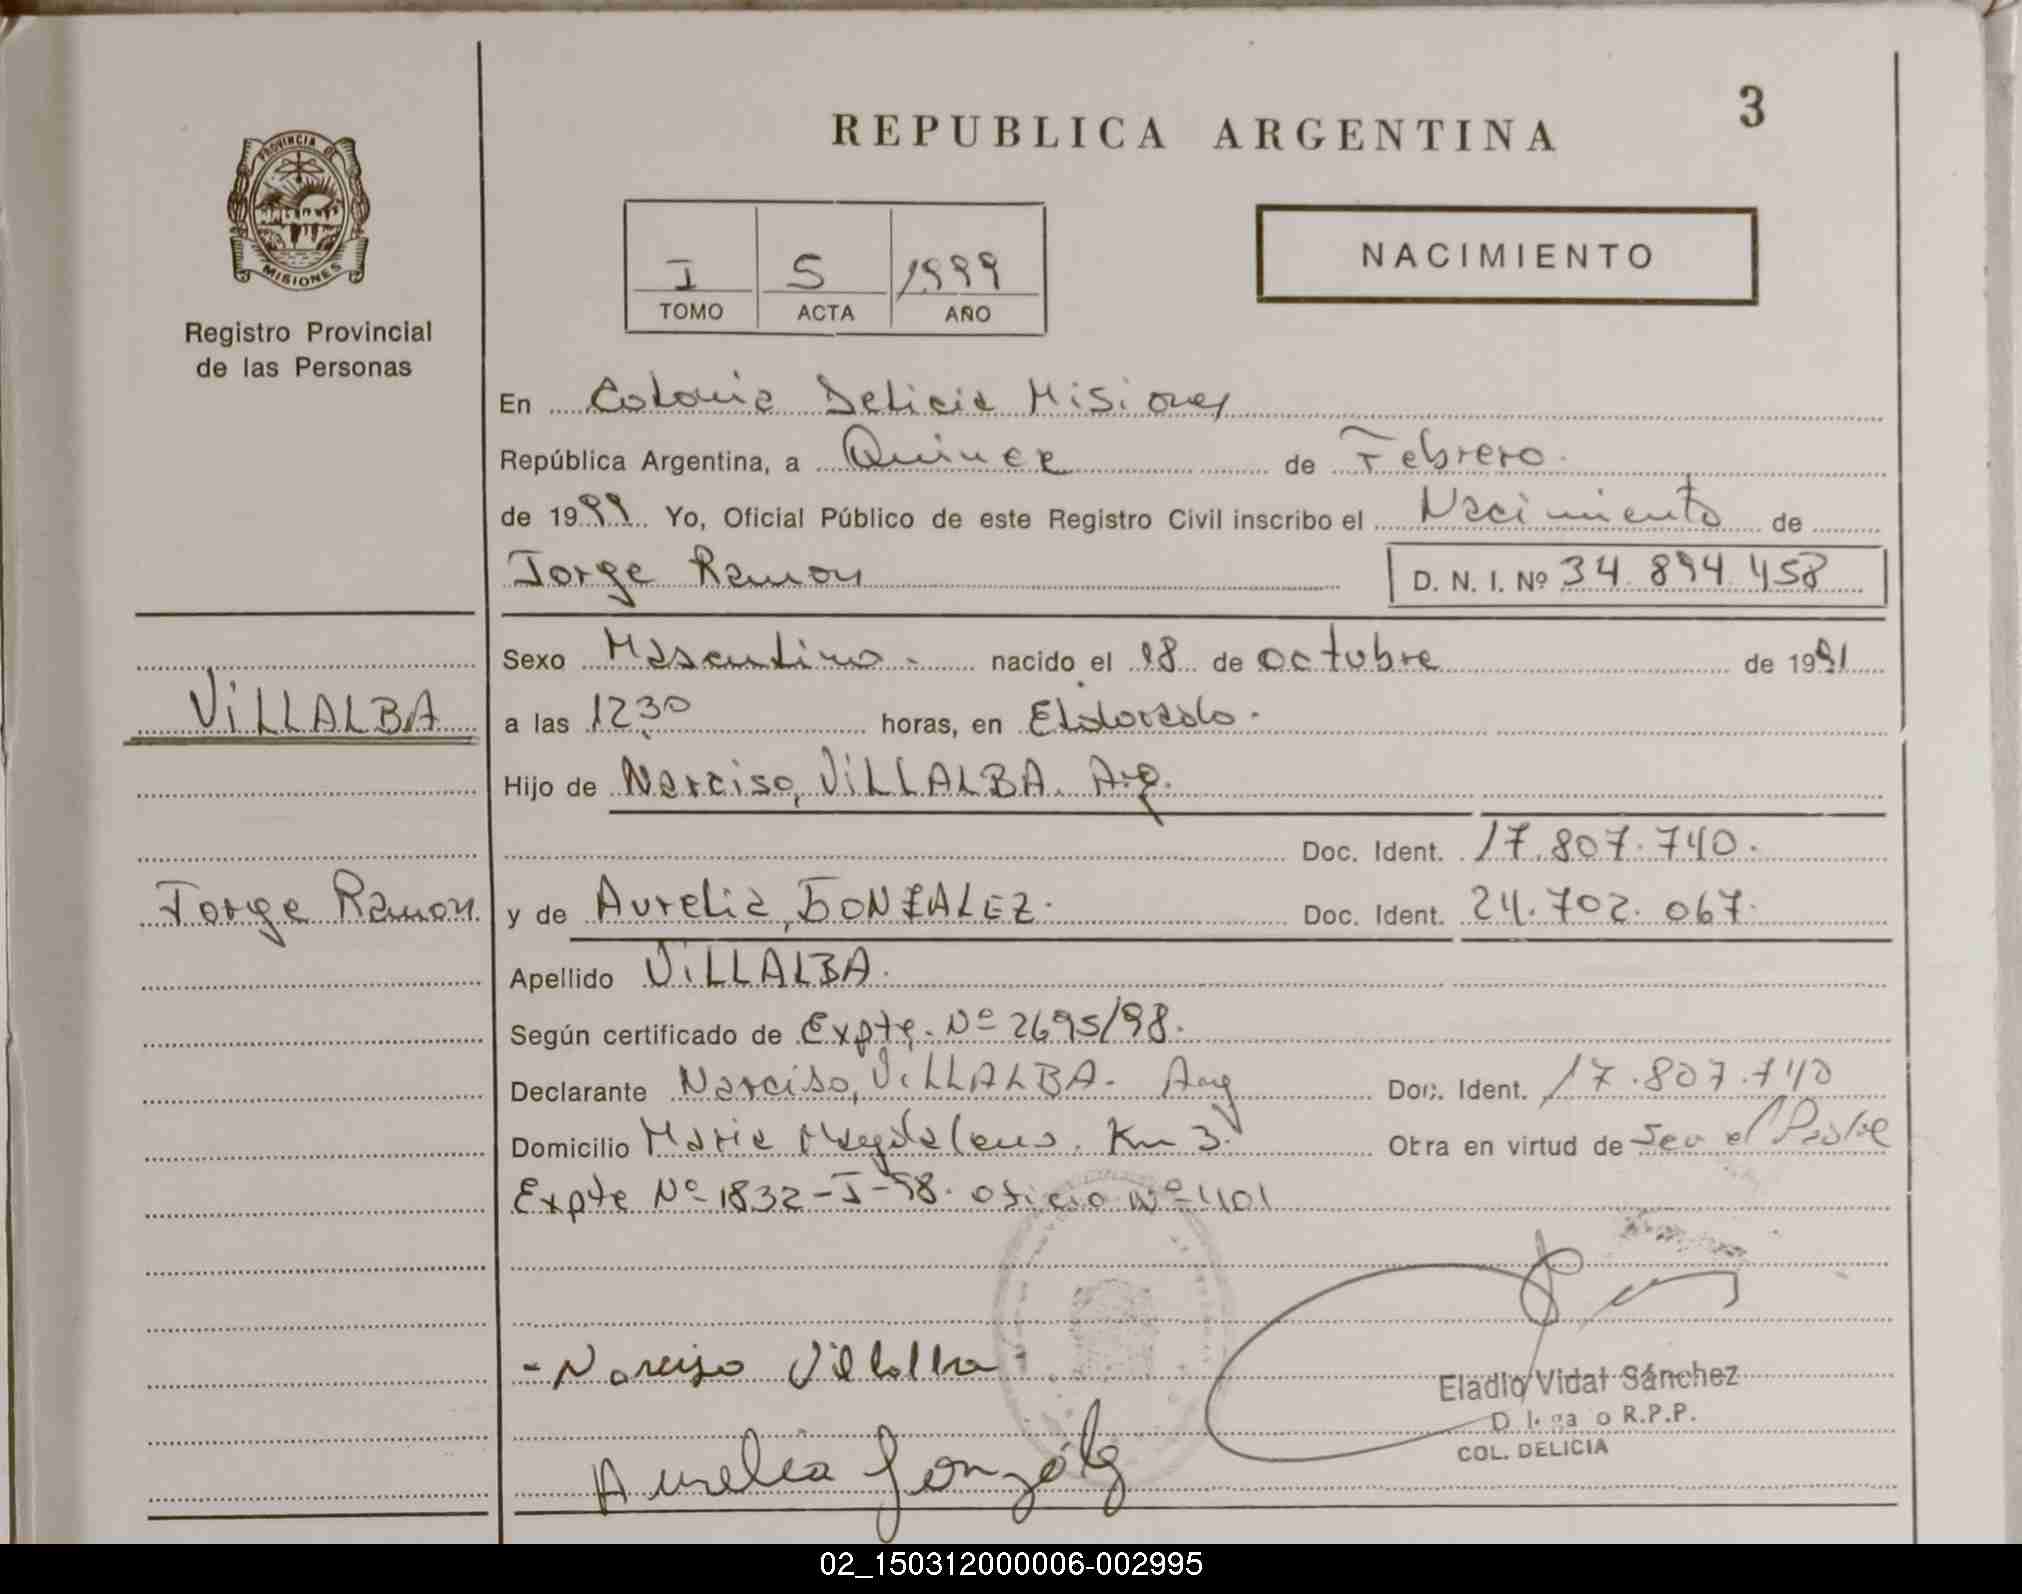 REPUBLICA ARGENTINA
3
PROVINCIA DE
MISIONES
Registro Provincial
de las Personas
I 5 1999
TOMO ACTA AÑO
NACIMIENTO
En Colonia Delicia Misiones
República Argentina, a Quince de Febrero.
de 1999 Yo, Oficial Público de este Registro Civil inscribo el Nacimiento de
Jorge Ramon D. N. I. Nº 34.894.458
Sexo Masculino. nacido el 18 de octubre de 1991
VILLALBA
a las 12,30 horas, en Eldorado.
Hijo de Narciso, VILLALBA. Arg.
Doc. Ident. 17.807.740.
Jorge Ramon
y de Aurelia, GONZALEZ. Doc. Ident. 24.702.067.
Apellido VILLALBA.
Según certificado de Expte. Nº 2695/98.
Declarante Narciso, VILLALBA. Arg Doc. Ident. 17.807.740
Domicilio Maria Magdalena. Km 3. Otra en virtud de Ser el Padre
Expte Nº 1832-I-98. oficio Nº 401
- Narciso Villalba
Eladio Vidal Sánchez
R.P.P.
COL. DELICIA
Aurelia González
02_150312000006-002995